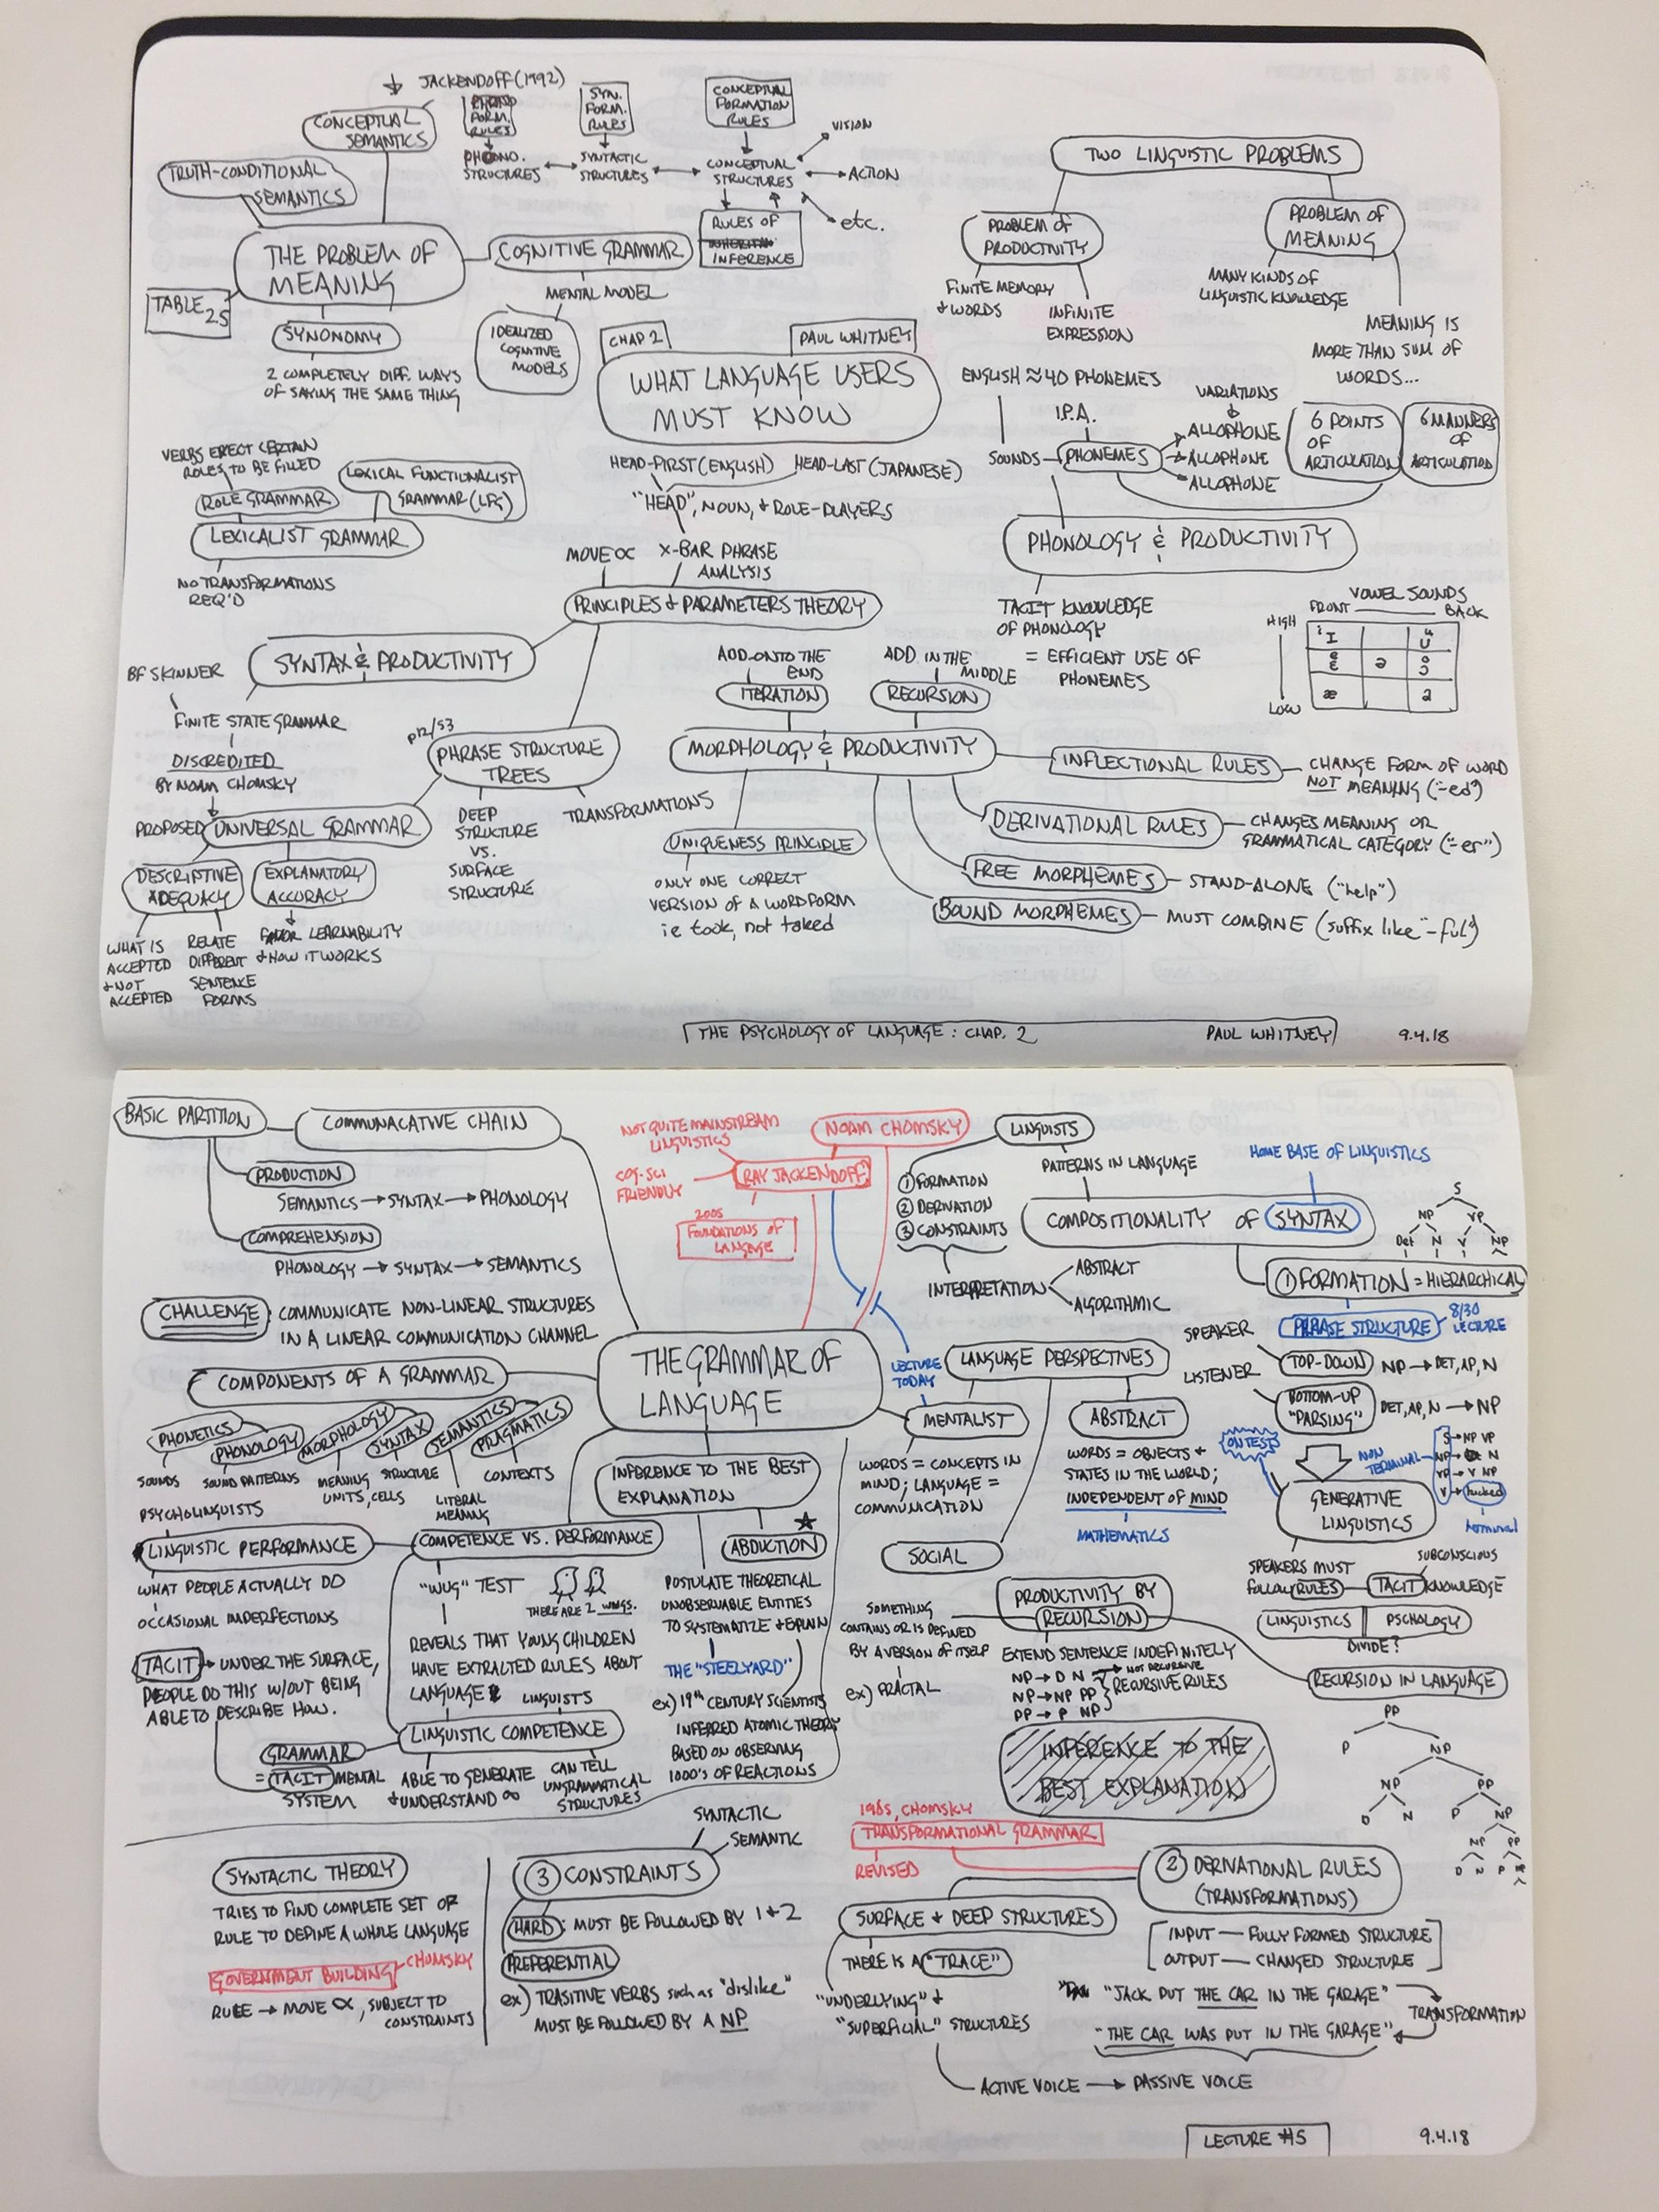 JACKENDOFF (1992)
CONCEPTUAL
SEMANTICS
PHONO
FORM.
RULES
SYN.
FORM.
RULES
CONCEPTUAL
FORMATION
RULES
PHONO.
STRUCTURES
SYNTACTIC
STRUCTURES
CONCEPTUAL
STRUCTURES
VISION
ACTION
etc.
RULES OF
INFERENCE
TRUTH-CONDITIONAL
SEMANTICS
THE PROBLEM OF
MEANING
COGNITIVE GRAMMAR
MENTAL MODEL
IDEALIZED
COGNITIVE
MODELS
TABLE
2.5
SYNONOMY
2 COMPLETELY DIFF. WAYS
OF SAYING THE SAME THING
TWO LINGUISTIC PROBLEMS
PROBLEM of
PRODUCTIVITY
PROBLEM of
MEANING
FINITE MEMORY
+ WORDS
INFINITE
EXPRESSION
MANY KINDS OF
LINGUISTIC KNOWLEDGE
MEANING IS
MORE THAN SUM OF
WORDS...
CHAP 2
PAUL WHITNEY
WHAT LANGUAGE USERS
MUST KNOW
HEAD-FIRST (ENGLISH) HEAD-LAST (JAPANESE)
"HEAD", NOUN, + ROLE-PLAYERS
MOVE ∝
X-BAR PHRASE
ANALYSIS
PRINCIPLES + PARAMETERS THEORY
ENGLISH ≈ 40 PHONEMES
I.P.A.
SOUNDS
PHONEMES
VARIATIONS
ALLOPHONE
ALLOPHONE
ALLOPHONE
6 POINTS
OF
ARTICULATION
6 MANNERS
OF
ARTICULATION
PHONOLOGY & PRODUCTIVITY
TACIT KNOWLEDGE
OF PHONOLOGY
= EFFICIENT USE OF
PHONEMES
VOWEL SOUNDS
FRONT BACK
HIGH
LOW
VERBS EXPECT CERTAIN
ROLES TO BE FILLED
ROLE GRAMMAR
LEXICAL FUNCTIONALIST
GRAMMAR (LFG)
LEXICALIST GRAMMAR
NO TRANSFORMATIONS
REQ'D
SYNTAX & PRODUCTIVITY
BF SKINNER
FINITE STATE GRAMMAR
DISCREDITED
BY NOAM CHOMSKY
PROPOSED UNIVERSAL GRAMMAR
DESCRIPTIVE
ADEQUACY
EXPLANATORY
ACCURACY
WHAT IS
ACCEPTED
+ NOT
ACCEPTED
RELATE
DIFFERENT
SENTENCE
FORMS
FAVOR LEARNABILITY
+ HOW IT WORKS
P12/53
PHRASE STRUCTURE
TREES
DEEP
STRUCTURE
VS.
SURFACE
STRUCTURE
TRANSFORMATIONS
ADD ONTO THE
END
ITERATION
ADD IN THE
MIDDLE
RECURSION
MORPHOLOGY & PRODUCTIVITY
UNIQUENESS PRINCIPLE
ONLY ONE CORRECT
VERSION OF A WORD FORM
ie took, not taked
INFLECTIONAL RULES
CHANGE FORM OF WORD
NOT MEANING ("-ed")
DERIVATIONAL RULES
CHANGES MEANING OR
GRAMMATICAL CATEGORY ("-er")
FREE MORPHEMES — STAND-ALONE ("help")
BOUND MORPHEMES — MUST COMBINE (suffix like "-ful")
THE PSYCHOLOGY OF LANGUAGE : CHAP. 2 PAUL WHITNEY 9.4.18
BASIC PARTITION
COMMUNACATIVE CHAIN
PRODUCTION
SEMANTICS → SYNTAX → PHONOLOGY
COMPREHENSION
PHONOLOGY → SYNTAX → SEMANTICS
CHALLENGE: COMMUNICATE NON-LINEAR STRUCTURES
IN A LINEAR COMMUNICATION CHANNEL
NOT QUITE MAINSTREAM
LINGUISTICS
COG-SCI
FRIENDLY
NOAM CHOMSKY
RAY JACKENDOFF
2005
FOUNDATIONS OF
LANGUAGE
LINGUISTS
① FORMATION
② DERIVATION
③ CONSTRAINTS
INTERPRETATION
ABSTRACT
ALGORITHMIC
PATTERNS IN LANGUAGE
HOME BASE OF LINGUISTICS
COMPOSITIONALITY OF SYNTAX
S
NP VP
Det N V NP
① FORMATION = HIERARCHICAL
PHRASE STRUCTURE
8/30
LECTURE
SPEAKER
TOP-DOWN
NP → DET, AP, N
LISTENER
BOTTOM-UP
"PARSING"
DET, AP, N → NP
ON TEST
NON
TERMINAL
S → NP VP
NP → N
VP → V NP
V → fucked
terminal
GENERATIVE
LINGUISTICS
SPEAKERS MUST
FOLLOW RULES
SUBCONSCIOUS
TACIT KNOWLEDGE
LINGUISTICS PSCHOLOGY
DIVIDE?
THE GRAMMAR OF
LANGUAGE
LECTURE
TODAY
LANGUAGE PERSPECTIVES
MENTALIST
WORDS = CONCEPTS IN
MIND; LANGUAGE =
COMMUNICATION
ABSTRACT
WORDS = OBJECTS +
STATES IN THE WORLD;
INDEPENDENT OF MIND
MATHEMATICS
SOCIAL
COMPONENTS OF A GRAMMAR
PHONETICS
PHONOLOGY
MORPHOLOGY
SYNTAX
SEMANTICS
PRAGMATICS
SOUNDS
SOUND PATTERNS
MEANING
UNITS, CELLS
STRUCTURE
LITERAL
MEANING
CONTEXTS
PSYCHOLINGUISTS
LINGUISTIC PERFORMANCE
WHAT PEOPLE ACTUALLY DO
OCCASIONAL IMPERFECTIONS
TACIT → UNDER THE SURFACE,
PEOPLE DO THIS W/OUT BEING
ABLE TO DESCRIBE HOW.
GRAMMAR
= TACIT MENTAL
SYSTEM
COMPETENCE VS. PERFORMANCE
"WUG" TEST
THERE ARE 2 WUGS.
REVEALS THAT YOUNG CHILDREN
HAVE EXTRACTED RULES ABOUT
LANGUAGE
LINGUISTS
LINGUISTIC COMPETENCE
ABLE TO GENERATE
+ UNDERSTAND ∞
CAN TELL
UNGRAMMATICAL
STRUCTURES
INFERENCE TO THE BEST
EXPLANATION
ABDUCTION
POSTULATE THEORETICAL
UNOBSERVABLE ENTITIES
TO SYSTEMATIZE + EXPLAIN
THE "STEELYARD"
ex) 19th CENTURY SCIENTISTS
INFERRED ATOMIC THEORY
BASED ON OBSERVING
1000's OF REACTIONS
PRODUCTIVITY BY
RECURSION
SOMETHING
CONTAINS OR IS DEFINED
BY A VERSION OF ITSELF
ex) FRACTAL
EXTEND SENTENCE INDEFINITELY
NP → D N → NOT RECURSIVE
NP → NP PP
PP → P NP
RECURSIVE RULES
INFERENCE TO THE
BEST EXPLANATION
RECURSION IN LANGUAGE
PP
P NP
NP PP
D N P NP
NP PP
D N P
SYNTACTIC THEORY
TRIES TO FIND COMPLETE SET OF
RULE TO DEFINE A WHOLE LANGUAGE
GOVERNMENT BUILDING — CHOMSKY
RULE → MOVE ∝, SUBJECT TO
CONSTRAINTS
SYNTACTIC
SEMANTIC
③ CONSTRAINTS
HARD: MUST BE FOLLOWED BY 1 + 2
PREFERENTIAL
ex) TRASITIVE VERBS such as "dislike"
MUST BE FOLLOWED BY A NP
1965, CHOMSKY
TRANSFORMATIONAL GRAMMAR
REVISED
② DERIVATIONAL RULES
(TRANSFORMATIONS)
INPUT — FULLY FORMED STRUCTURE
OUTPUT — CHANGED STRUCTURE
SURFACE + DEEP STRUCTURES
THERE IS A "TRACE"
"UNDERLYING" +
"SUPERFICIAL" STRUCTURES
"JACK PUT THE CAR IN THE GARAGE"
TRANSFORMATION
"THE CAR WAS PUT IN THE GARAGE"
ACTIVE VOICE → PASSIVE VOICE
LECTURE #5 9.4.18